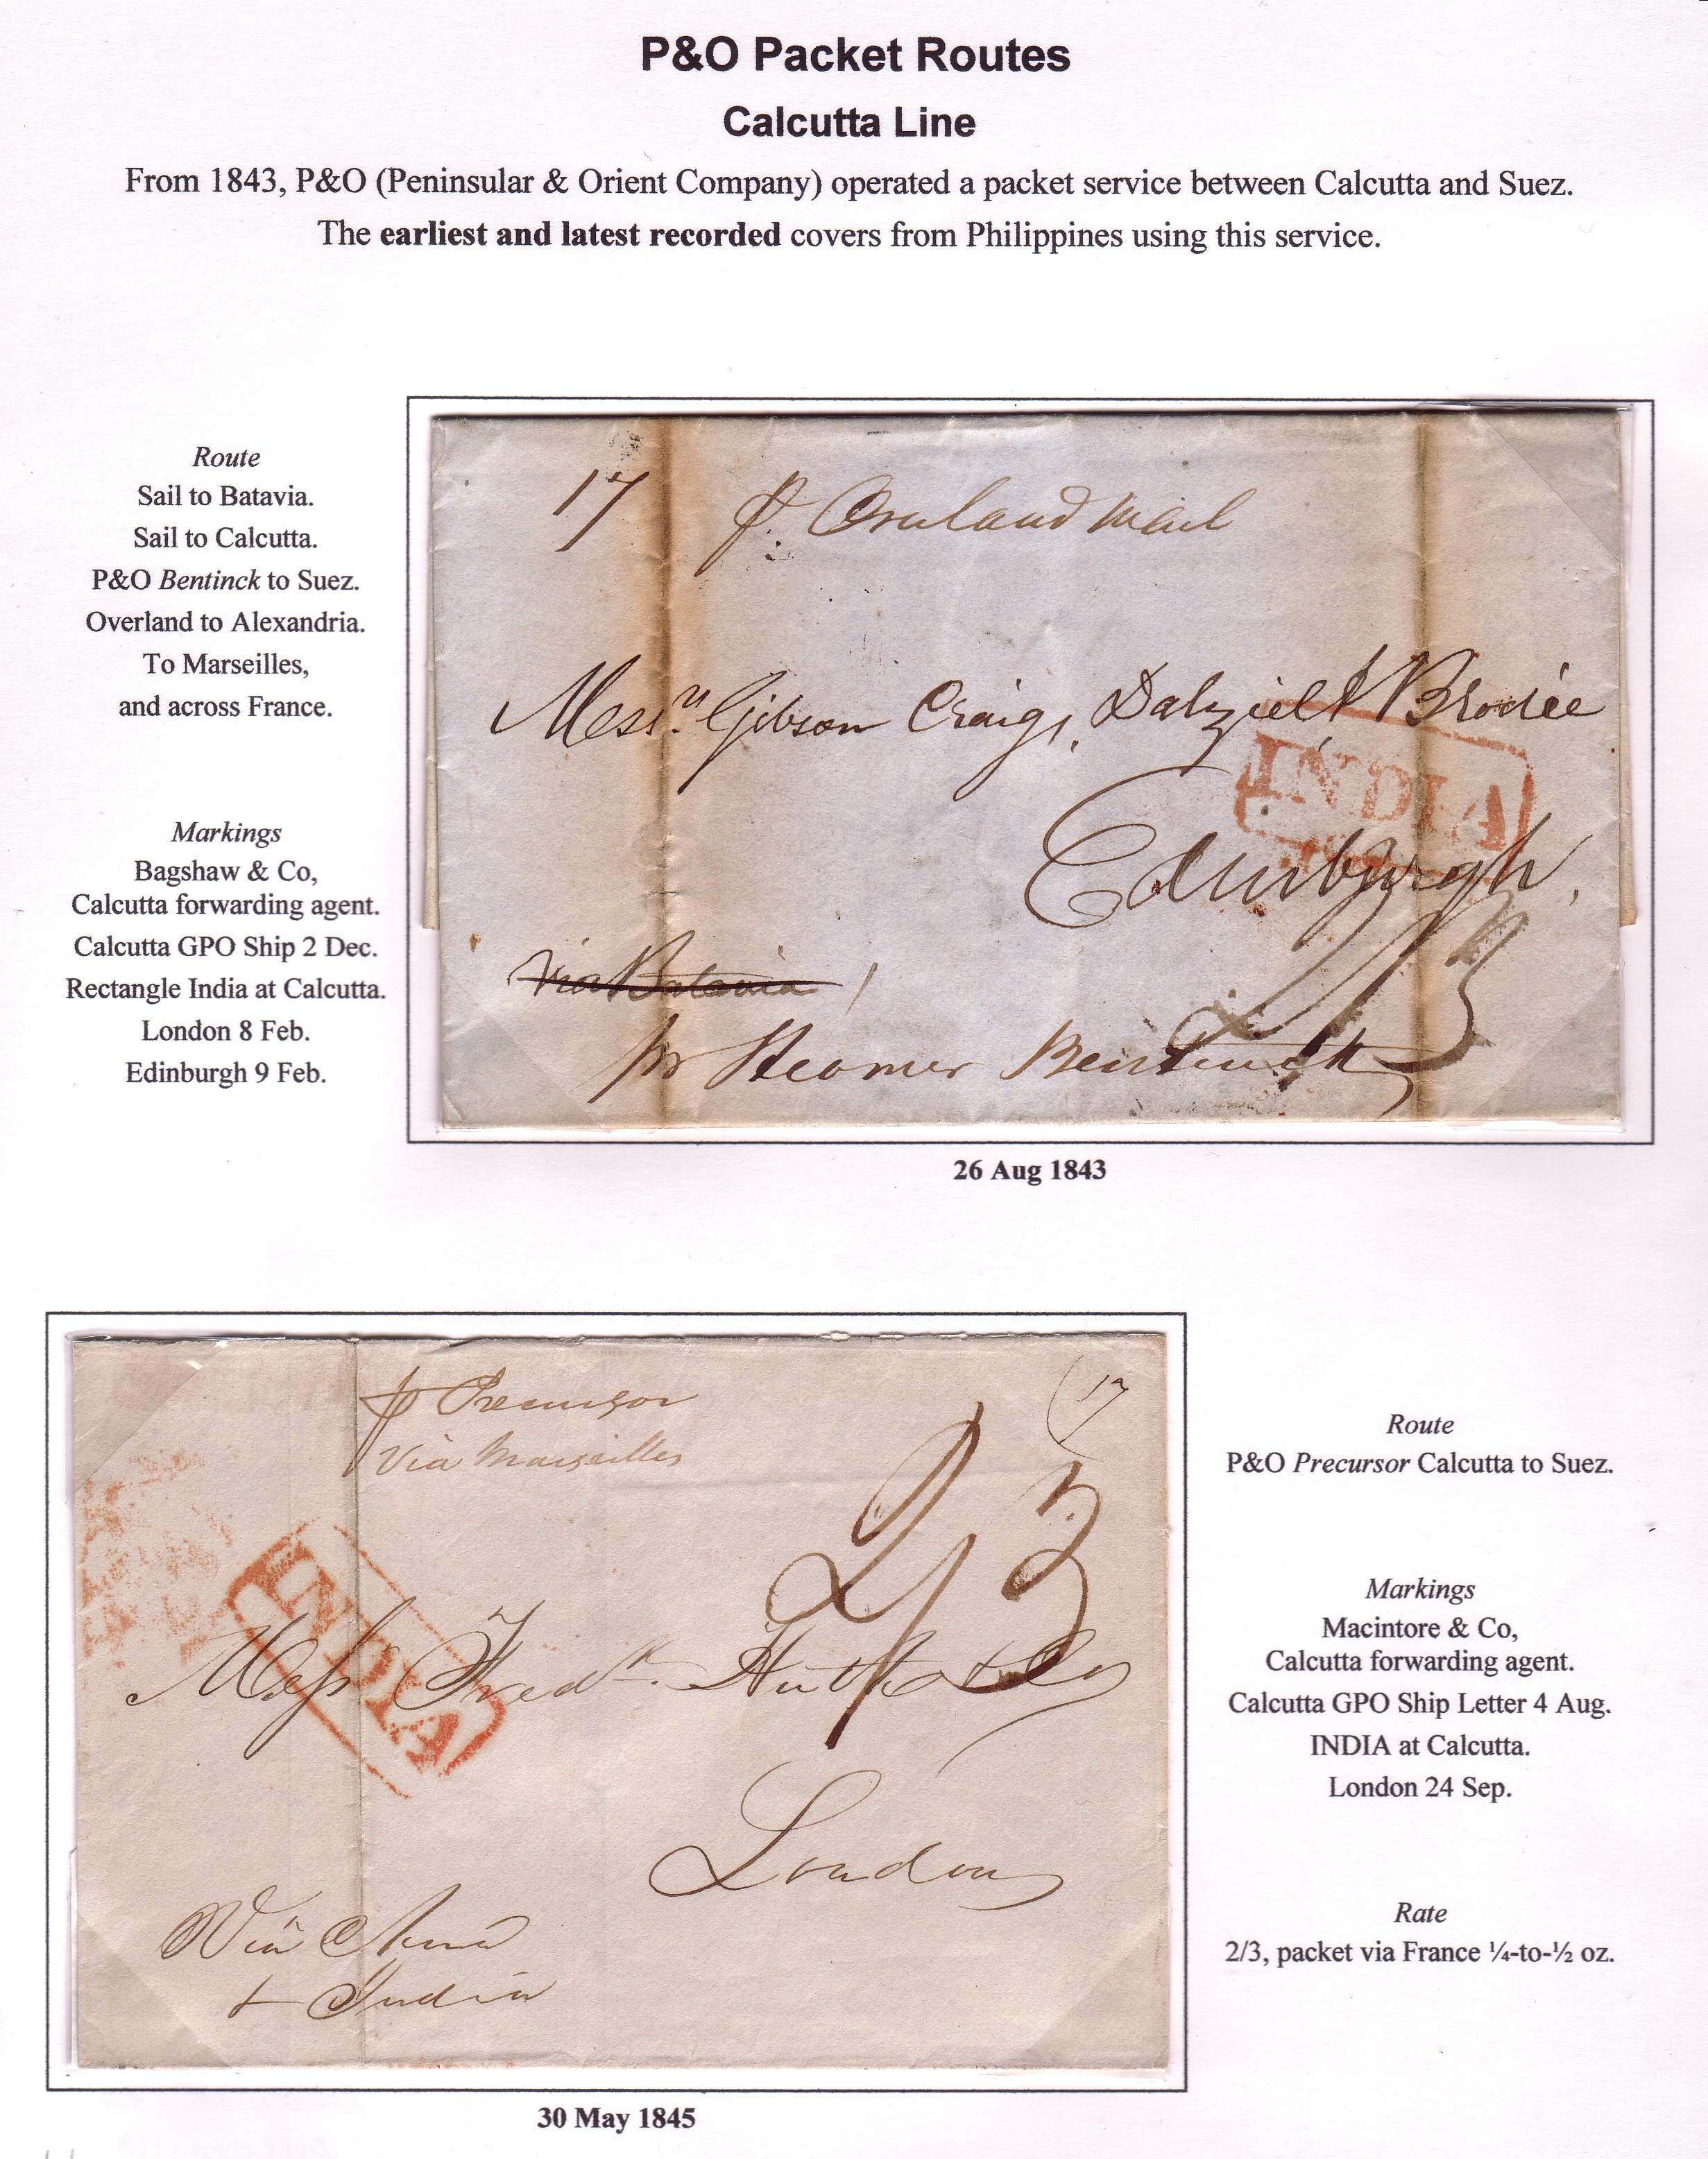 P&O Packet Routes
Calcutta Line
From 1843, P&O (Peninsular & Orient Company) operated a packet service between Calcutta and Suez.
The earliest and latest recorded covers from Philippines using this service.
Route
Sail to Batavia.
Sail to Calcutta.
P&O Bentinck to Suez.
Overland to Alexandria.
To Marseilles,
and across France.
Markings
Bagshaw & Co,
Calcutta forwarding agent.
Calcutta GPO Ship 2 Dec.
Rectangle India at Calcutta.
London 8 Feb.
Edinburgh 9 Feb.
17 p. Overland Mail
Messrs Gibson Craig, Dalziel & Brodie
INDIA
Edinburgh,
2/3
via Batavia
pr Steamer Bentinck
26 Aug 1843
17
p Precursor
Via Marseilles
2/3
INDIA
Mess Fredk. Huth & Co
London
Via
& India
30 May 1845
Route
P&O Precursor Calcutta to Suez.
Markings
Macintore & Co,
Calcutta forwarding agent.
Calcutta GPO Ship Letter 4 Aug.
INDIA at Calcutta.
London 24 Sep.
Rate
2/3, packet via France ¼-to-½ oz.